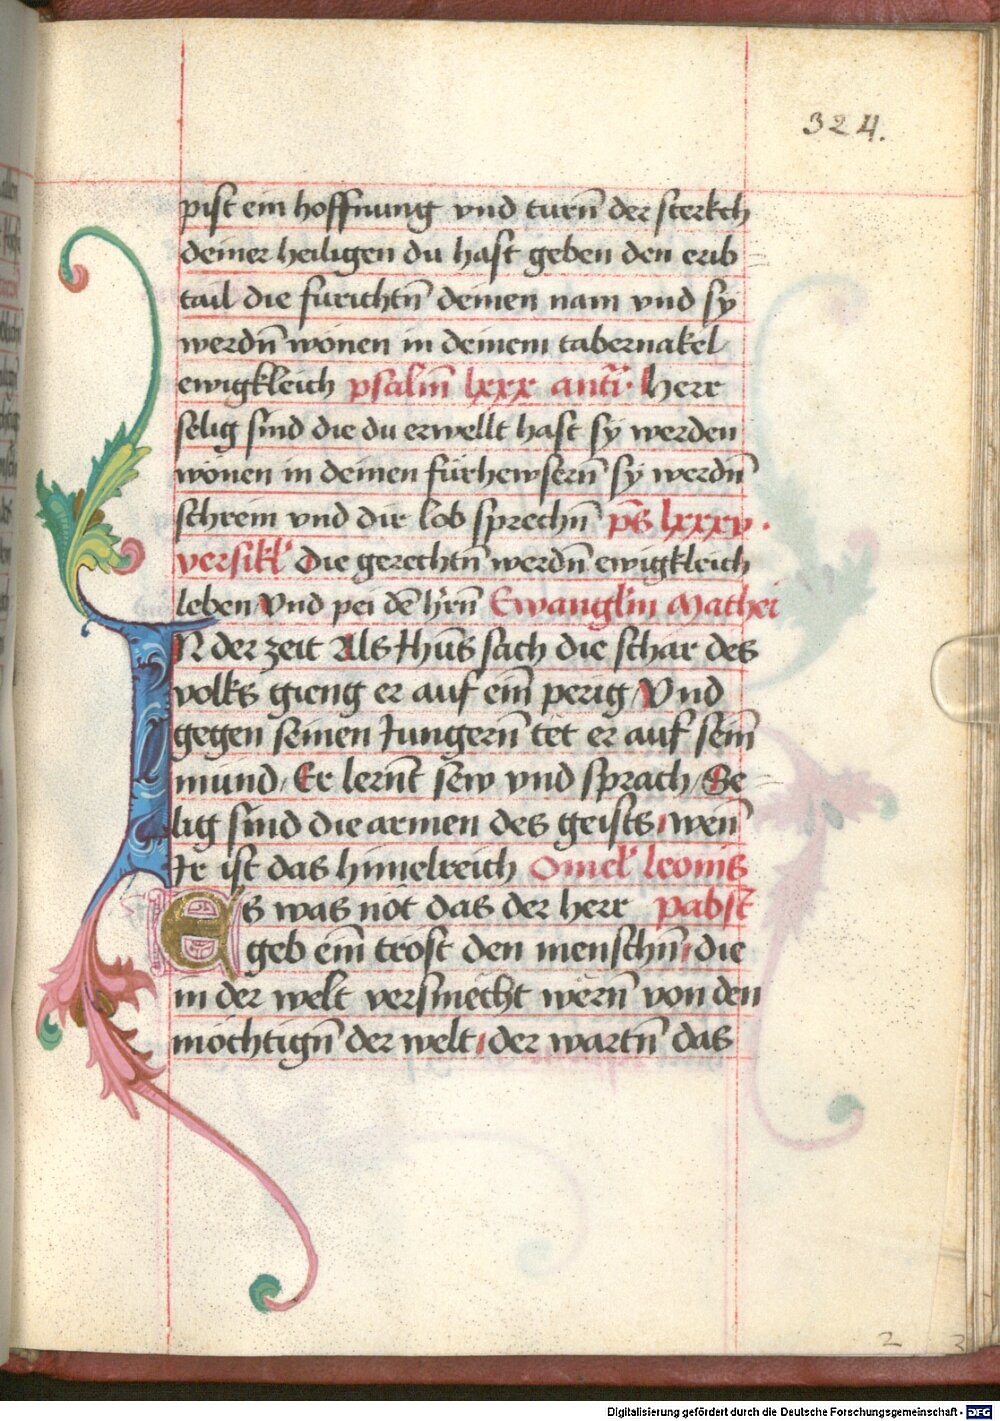 324.
pist ein hoffnung vnd turn̄ der sterkch
deiner heiligen du hast geben den erib
tail die furichtn̄ deinen nam vnd sy
werdn̄ wonen in deinem tabernakel
ewigkleich psalm̄ lxxx anti. Herr
selig sind die du erwellt hast sy werden
wonen in deinen fürhewsern̄ sy werdn̄
schrein vnd dir lob sprechn̄ ps̄ lxxxv.
versikl' Die gerechtn̄ werdn̄ ewigkleich
leben Vnd pei dē hr̄n Ewanglim̄ Mathei
IN der zeit Als Ihūs sach die schar des
volks gieng er auf ein̄ perig Vnd
gegen seinen Jungern̄ tet er auf sein̄
mund. Er lernt̄ sew vnd sprach Se=
lig sind die armen des geists wen̄
Ir ist das himelreich Omel' leonis
Es was nöt das der herr pabst
geb ein̄ trost den menschn̄ die
in der welt versmecht wern̄ von den
möchtign̄ der welt der wartn̄ das
2
Digitalisierung gefördert durch die Deutsche Forschungsgemeinschaft - DFG